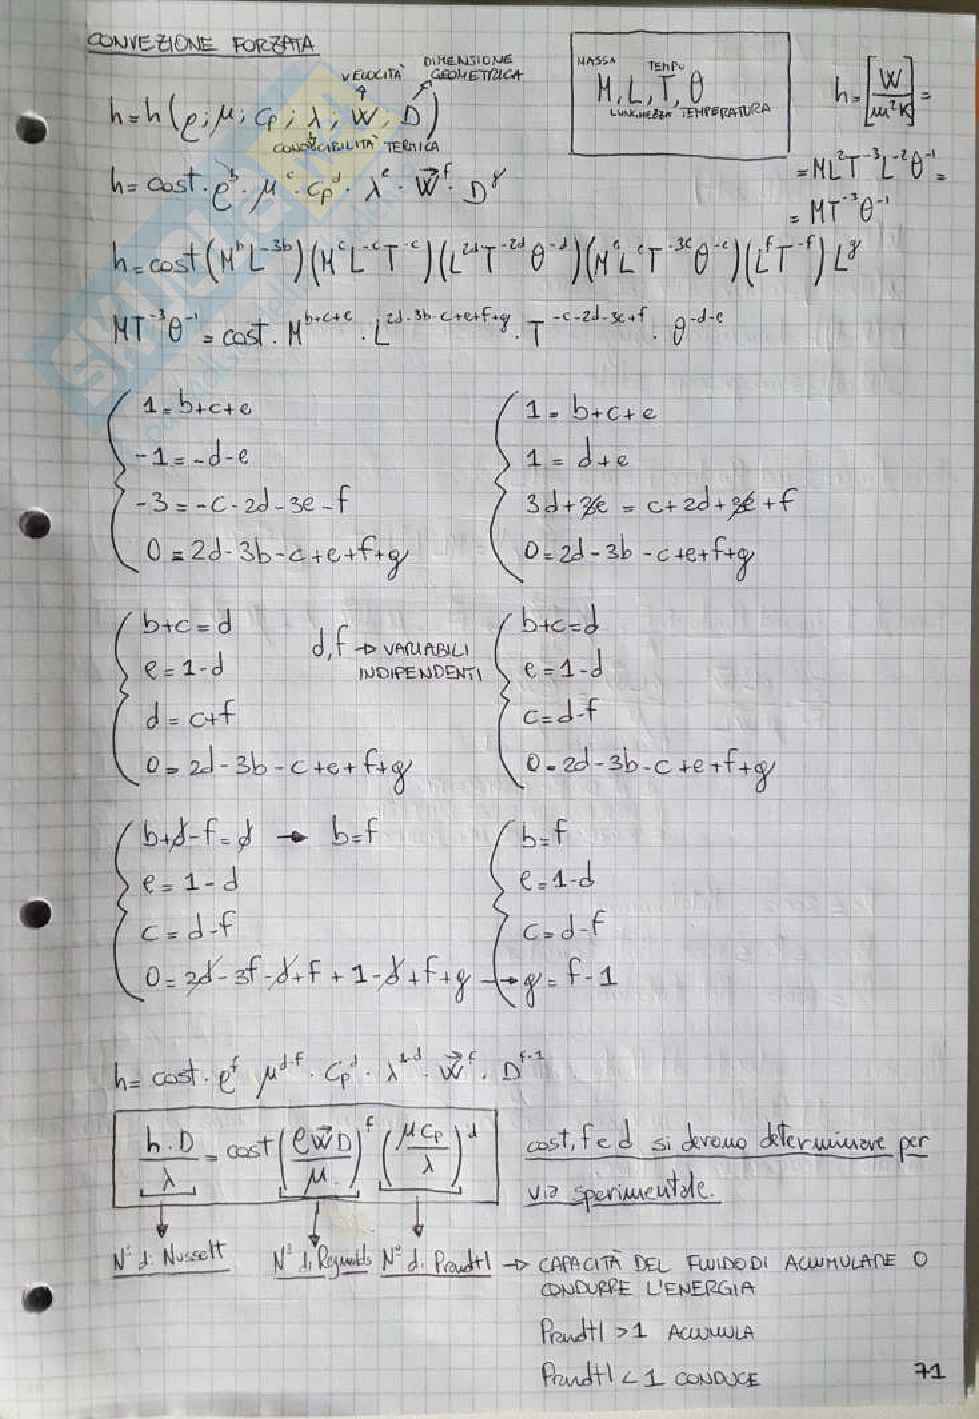 CONVEZIONE FORZATA
h = h (ρ; μ; cp; λ; W, D)
VELOCITÀ
DIMENSIONE GEOMETRICA
CONDUCIBILITÀ TERMICA
MASSA TEMPO
M, L, T, θ
LUNGHEZZA TEMPERATURA
h = [W/m²K] =
= ML²T⁻³L⁻²θ⁻¹ =
= MT⁻³θ⁻¹
h = cost · ρᵇ · μᶜ · cpᵈ · λᵉ · W⃗ᶠ · Dᵍ
h = cost (Mᵇ L⁻³ᵇ)(Mᶜ L⁻ᶜ T⁻ᶜ)(L²ᵈ T⁻²ᵈ θ⁻ᵈ)(Mᵉ Lᵉ T⁻³ᵉ θ⁻ᵉ)(Lᶠ T⁻ᶠ) Lᵍ
MT⁻³θ⁻¹ = cost · M^(b+c+e) · L^(2d-3b-c+e+f+g) · T^(-c-2d-3e+f) · θ^(-d-e)
1 = b+c+e
-1 = -d-e
-3 = -c-2d-3e-f
0 = 2d-3b-c+e+f+g
1 = b+c+e
1 = d+e
3d+3e = c+2d+3e+f
0 = 2d-3b-c+e+f+g
b+c = d
e = 1-d
d = c+f
0 = 2d-3b-c+e+f+g
d, f → VARIABILI INDIPENDENTI
b+c = d
e = 1-d
c = d-f
0 = 2d-3b-c+e+f+g
b+d-f = d → b = f
e = 1-d
c = d-f
0 = 2d-3f-d+f+1-d+f+g → g = f-1
b = f
e = 1-d
c = d-f
h = cost · ρᶠ μ^(d-f) · cpᵈ · λ^(1-d) · W⃗ᶠ · D^(f-1)
h·D/λ = cost (ρW⃗D/μ)ᶠ (μcp/λ)ᵈ
cost, f e d si devono determinare per
via sperimentale.
N° di Nusselt N° di Reynolds N° di Prandtl → CAPACITÀ DEL FLUIDO DI ACCUMULARE O
CONDURRE L'ENERGIA
Prandtl > 1 ACCUMULA
Prandtl < 1 CONDUCE
71